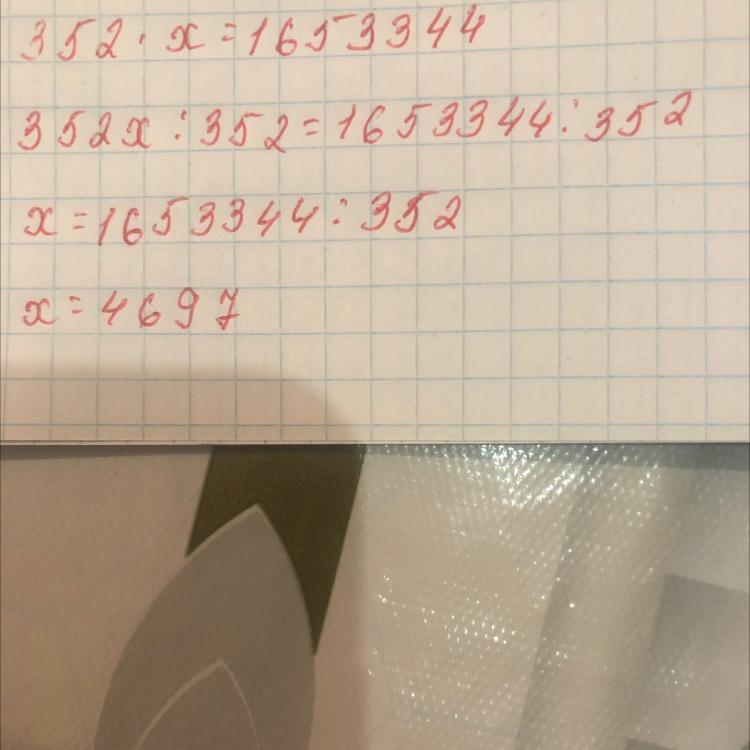 352 · x = 1653344
352x : 352 = 1653344 : 352
x = 1653344 : 352
x = 4697